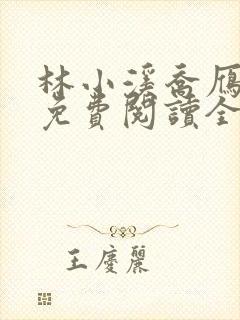 林小溪喬雁
免費閱讀全
王慶麗